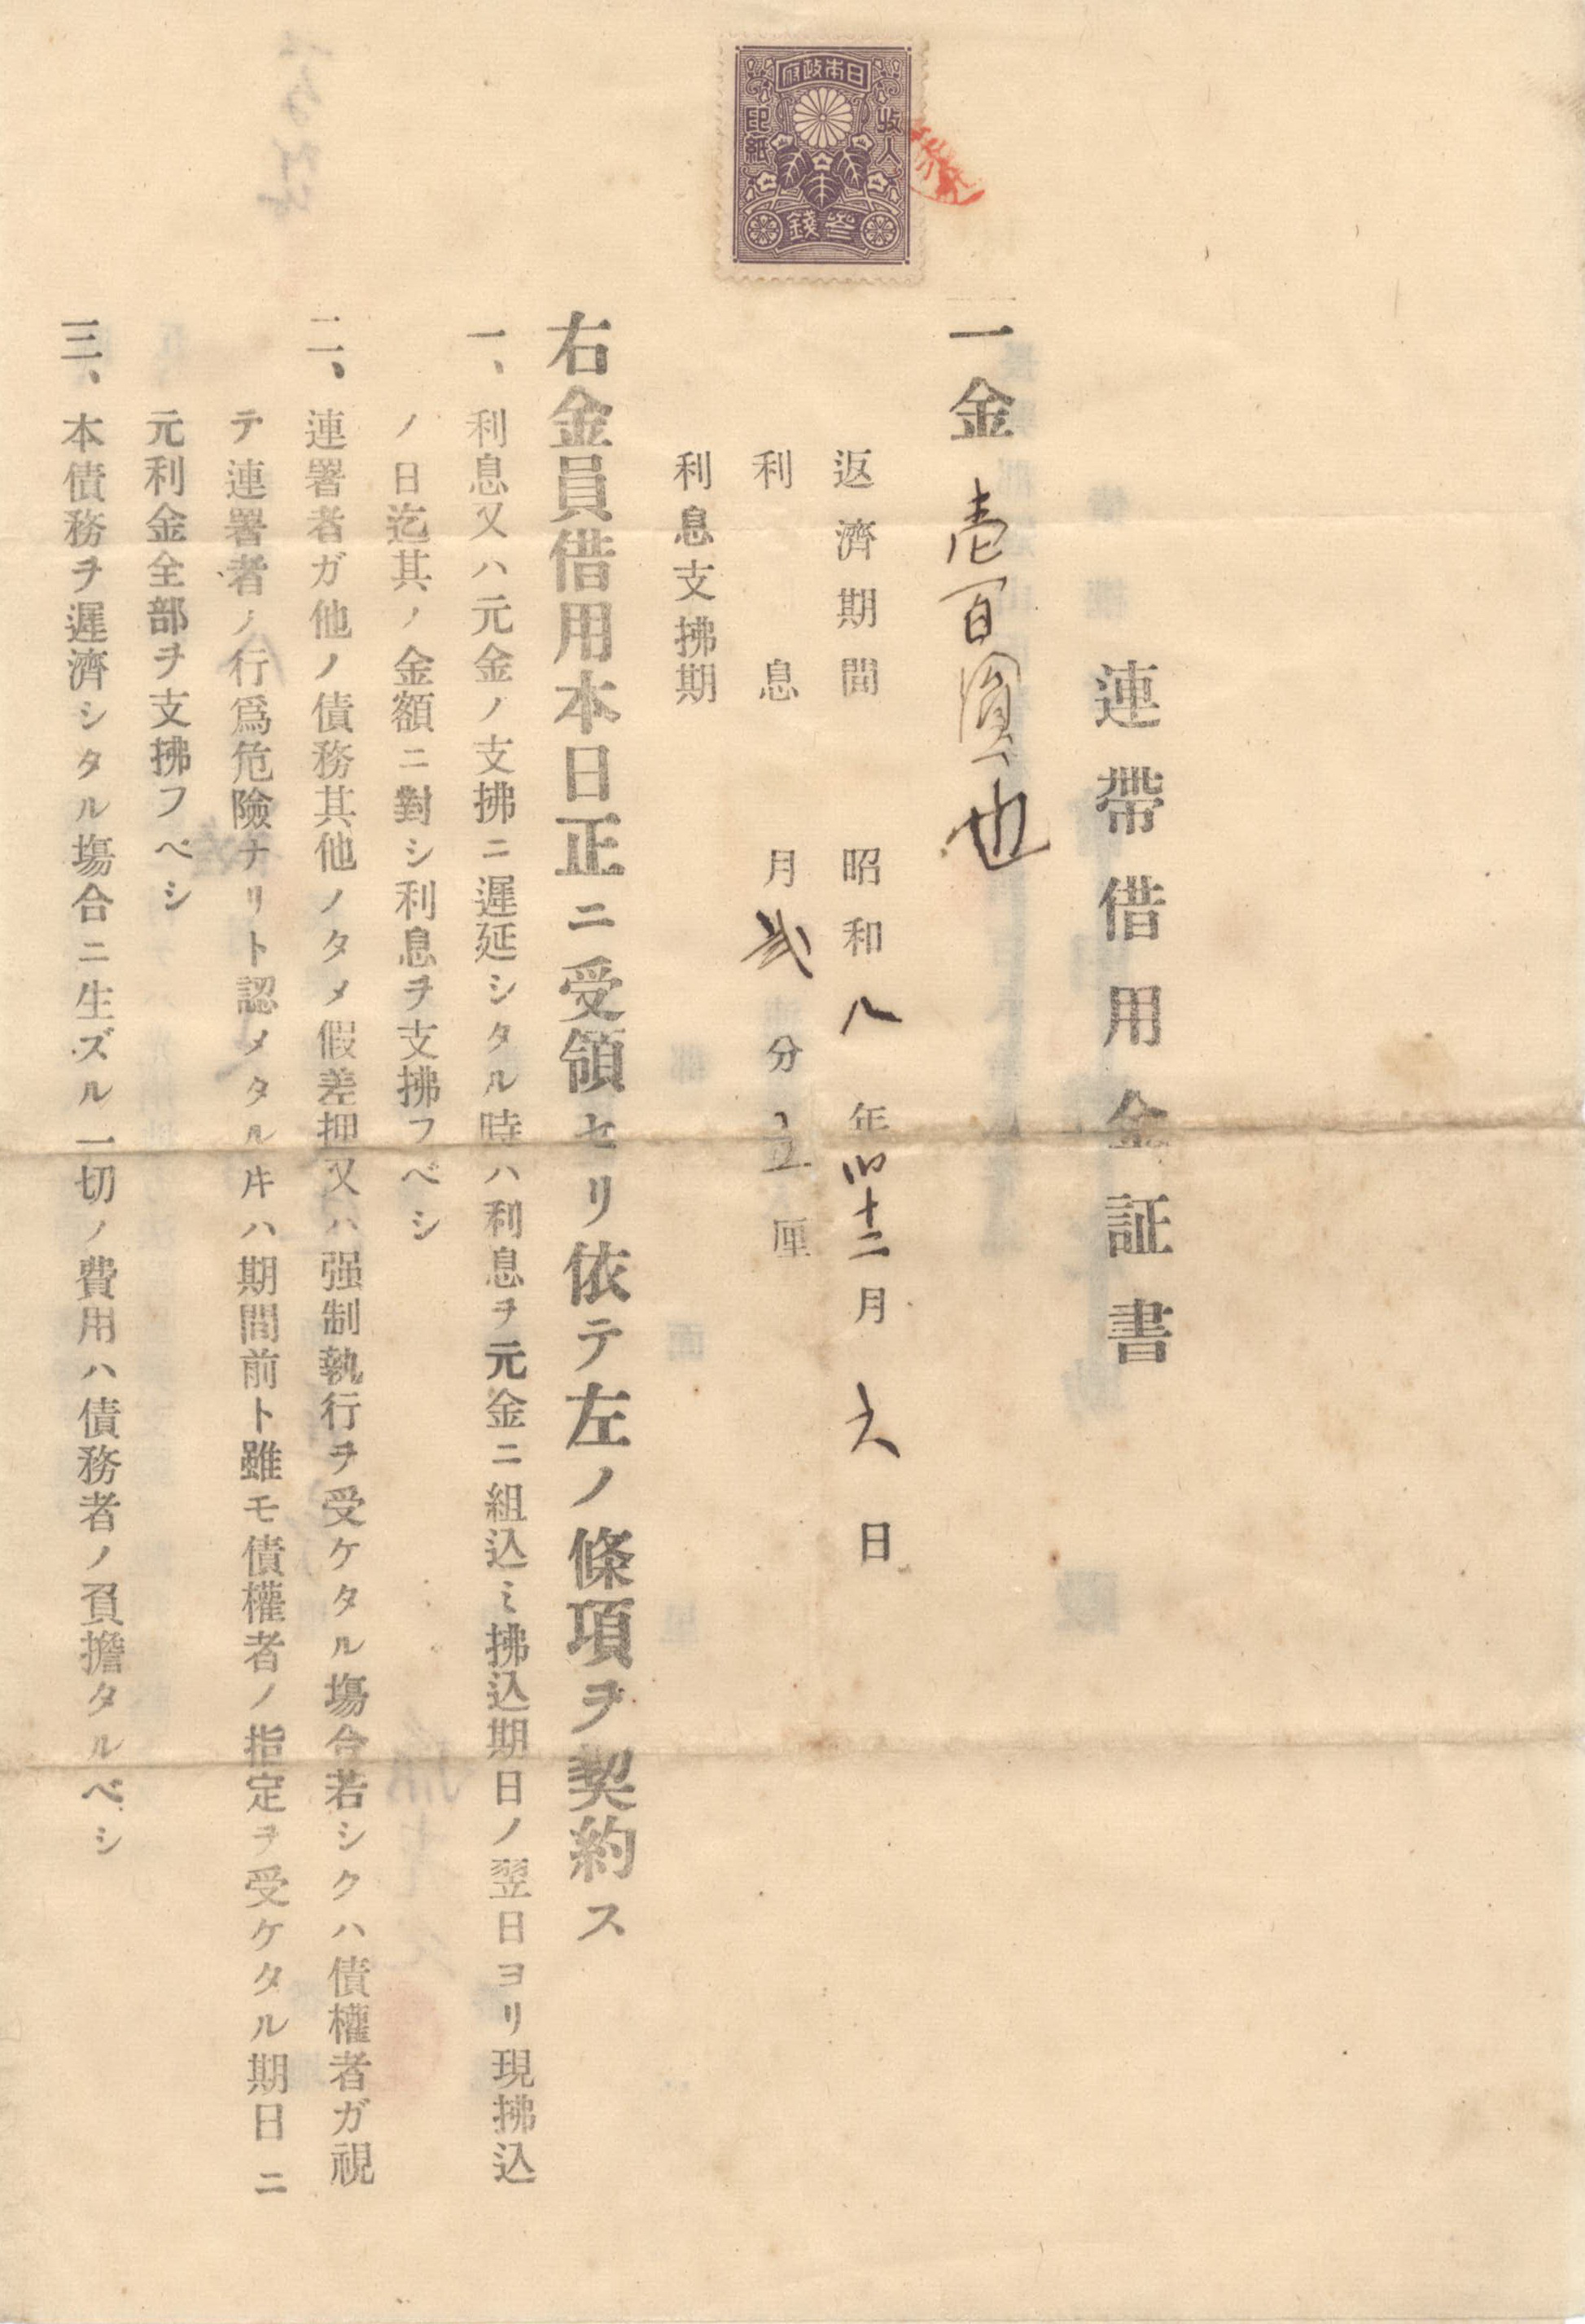 日本政府
収入
印紙
参錢
連帶借用金証書
一金壱百圓也
返濟期間 昭和八年十二月六日
利息 月弐分五厘
利息支拂期
右金員借用本日正ニ受領セリ依テ左ノ條項ヲ契約ス
一、利息又ハ元金ノ支拂ニ遲延シタル時ハ利息ヲ元金ニ組込ミ拂込期日ノ翌日ヨリ現拂込
ノ日迄其ノ金額ニ對シ利息ヲ支拂フベシ
二、連署者ガ他ノ債務其他ノタメ假差押又ハ强制執行ヲ受ケタル塲合若シクハ債權者ガ視
テ連署者ノ行爲危險ナリト認メタルキハ期間前ト雖モ債權者ノ指定ヲ受ケタル期日ニ
元利金全部ヲ支拂フベシ
三、本債務ヲ遲濟シタル塲合ニ生ズル一切ノ費用ハ債務者ノ負擔タルベシ